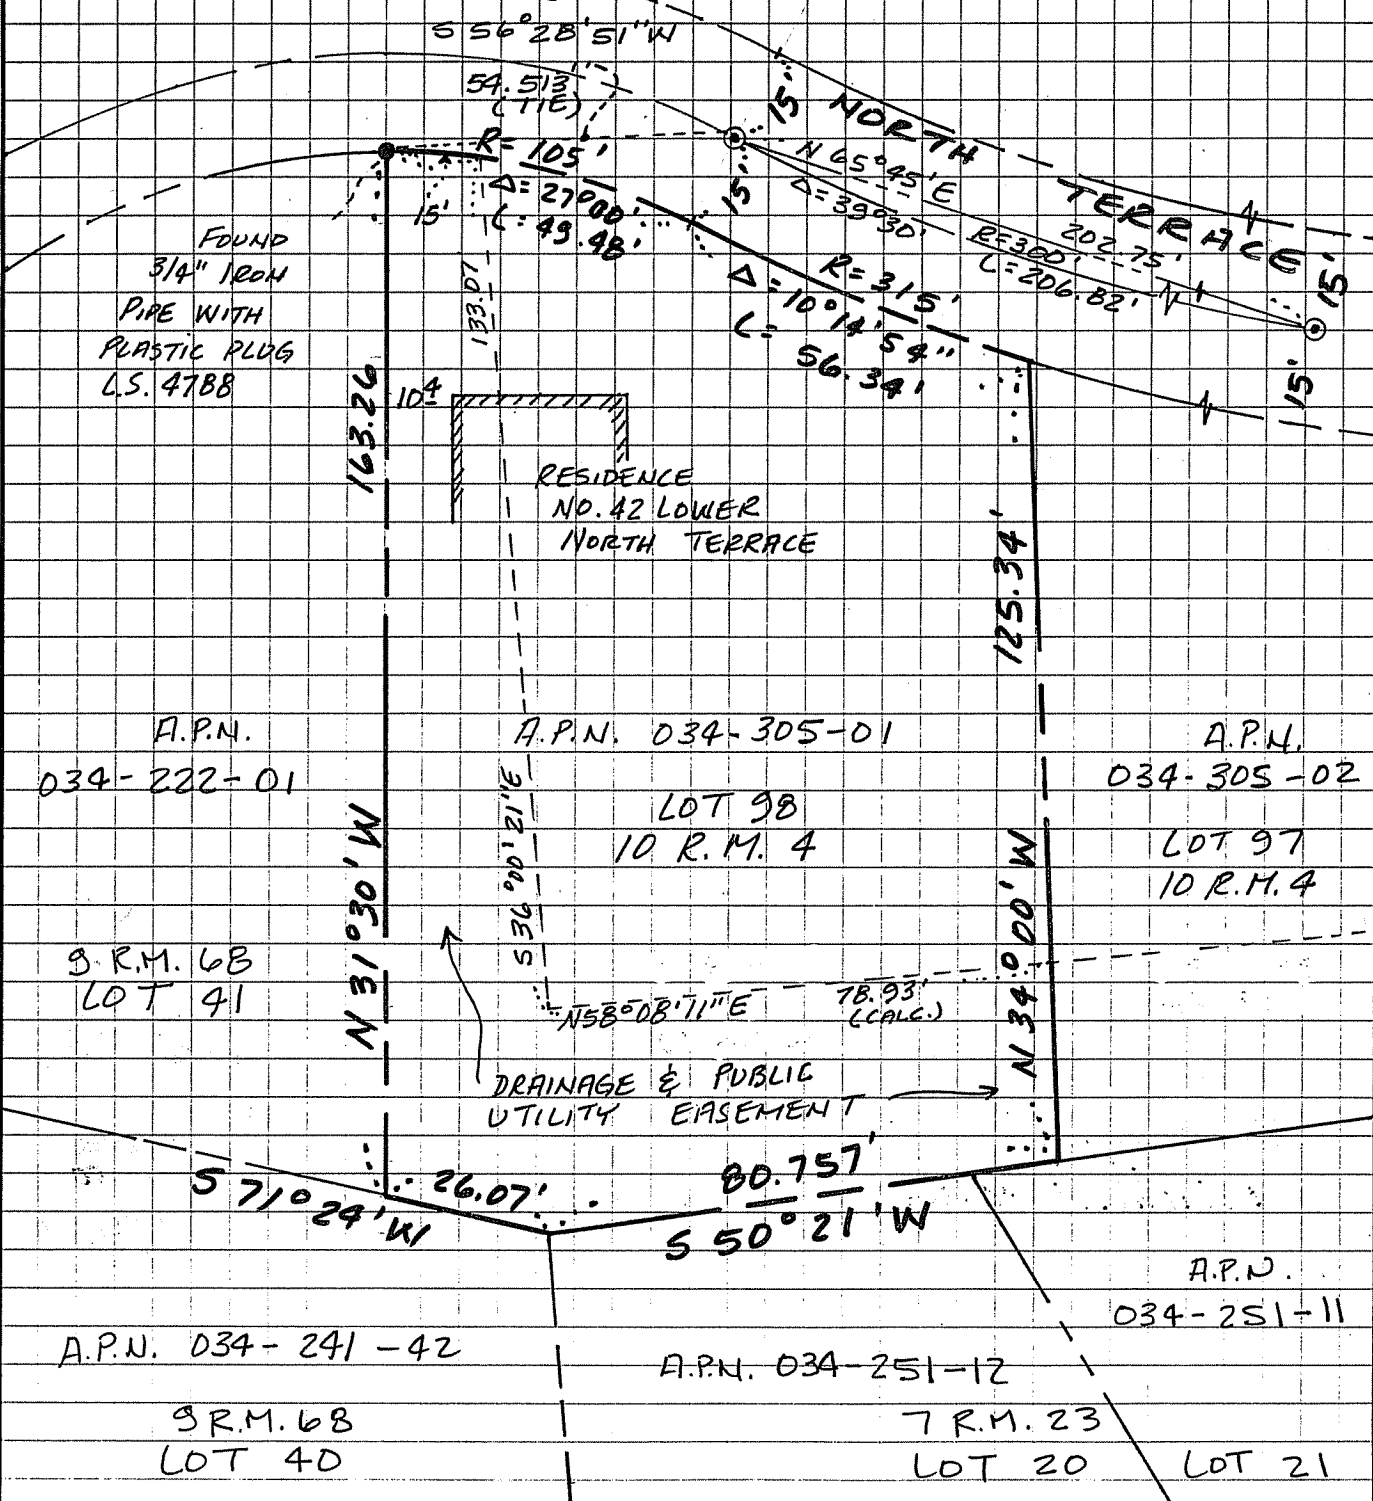 S 56°28'51"W
54.513
(TIE)
R= 105'
Δ= 27°00'
L= 49.48'
15'
15'
15'
NORTH
TERRACE
N 65°45'E
202.75'
Δ=39°30'
R=300'
L=206.82'
15'
15'
R=315'
Δ=10°14'54"
L=
56.34'
FOUND
3/4" IRON
PIPE WITH
PLASTIC PLUG
L.S. 4788
133.07
163.26
10 4
RESIDENCE
NO. 42 LOWER
NORTH TERRACE
125.34'
A.P.N.
034-222-01
A.P.N. 034-305-01
A.P.N.
034-305-02
LOT 98
10 R.M. 4
LOT 97
10 R.M. 4
N 31°30' W
S 36°00'21"E
N 34°00' W
9 R.M. 68
LOT 41
N58°08'11"E
78.93'
(CALC.)
DRAINAGE & PUBLIC
UTILITY EASEMENT
S 71°24' W
26.07'
80.757'
S 50°21'W
A.P.N.
034-251-11
A.P.N. 034-241-42
A.P.N. 034-251-12
9 R.M. 68
LOT 40
7 R.M. 23
LOT 20
LOT 21